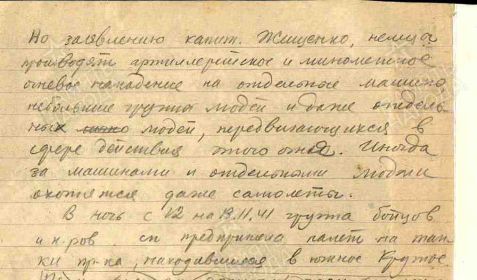 По заявлению капит. Жищенко, немцы
производят артиллерийское и минометное
огневое нападение на отдельные машины
небольшие группы людей и даже отдель-
ных людей, передвигающихся в
сфере действия этого огня. Иногда
за машинами и отдельными людьми
охотятся даже самолеты.
В ночь с 12 на 13.11.41 группа бойцов
и к-ров сп предприняла налет на тан-
ки пр-ка, находившиеся в южное Крутое